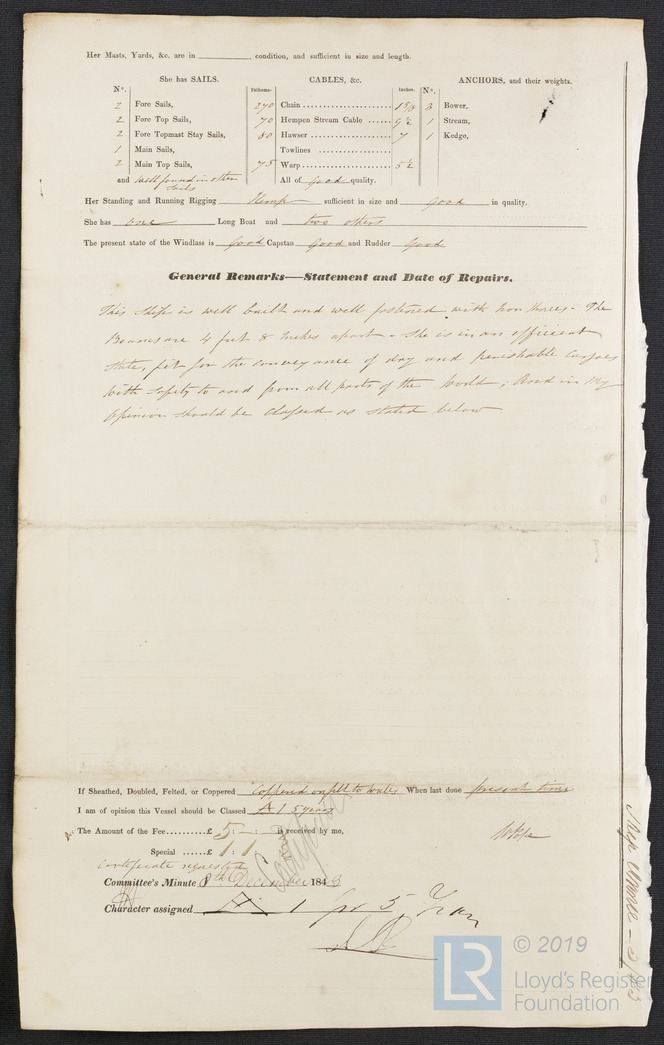 Her Masts, Yards, &c. are in ____ condition, and sufficient in size and length.
She has SAILS. CABLES, &c. ANCHORS, and their weights.
N°. Fathoms. Inches. N°.
2 Fore Sails, 270 Chain 1 3/8 3 Bower,
2 Fore Top Sails, 70 Hempen Stream Cable 9 1/2 1 Stream,
2 Fore Topmast Stay Sails, 80 Hawser 7 1 Kedge,
1 Main Sails, Towlines
2 Main Top Sails, 75 Warp 5 1/2
and well found in other sails All of good quality.
Her Standing and Running Rigging Hemp sufficient in size and good in quality.
She has one Long Boat and two others
The present state of the Windlass is Good Capstan Good and Rudder Good
General Remarks—Statement and Date of Repairs.
This Ship is well built and well fastened with Iron Knees - The
Beams are 4 feet 8 Inches apart - She is in an efficient
state, fit for the conveyance of dry and perishable Cargoes
with safety to and from all parts of the World; And in my
opinion should be Classed as stated below
If Sheathed, Doubled, Felted, or Coppered Coppered on felt to wales When last done present time
I am of opinion this Vessel should be Classed A 1 5 years
The Amount of the Fee £ 5:-:- is received by me,
Special £ 1:1:
Certificate requested
Committee's Minute 8th December 1843
Character assigned A 1 for 5 Years
© 2019
LR
Lloyd's Register
Foundation